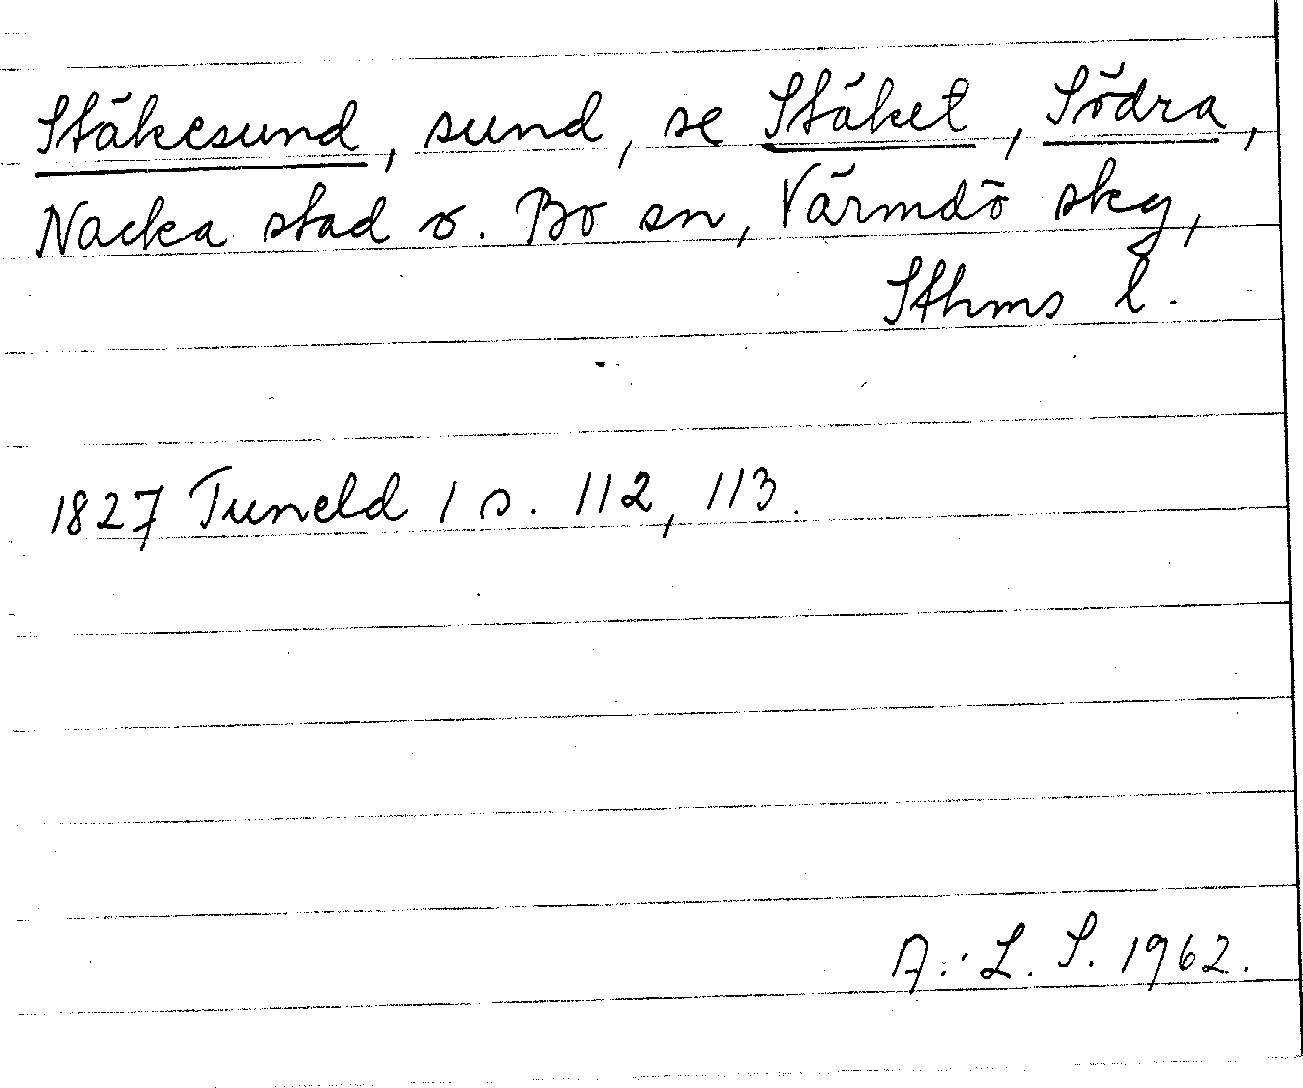 Stäkesund, sund, se Stäket, Södra,
Nacka stad o. Bo sn, Värmdö skg,
Sthms l.
1827 Tuneld 1 s. 112, 113.
A.: L. S. 1962.